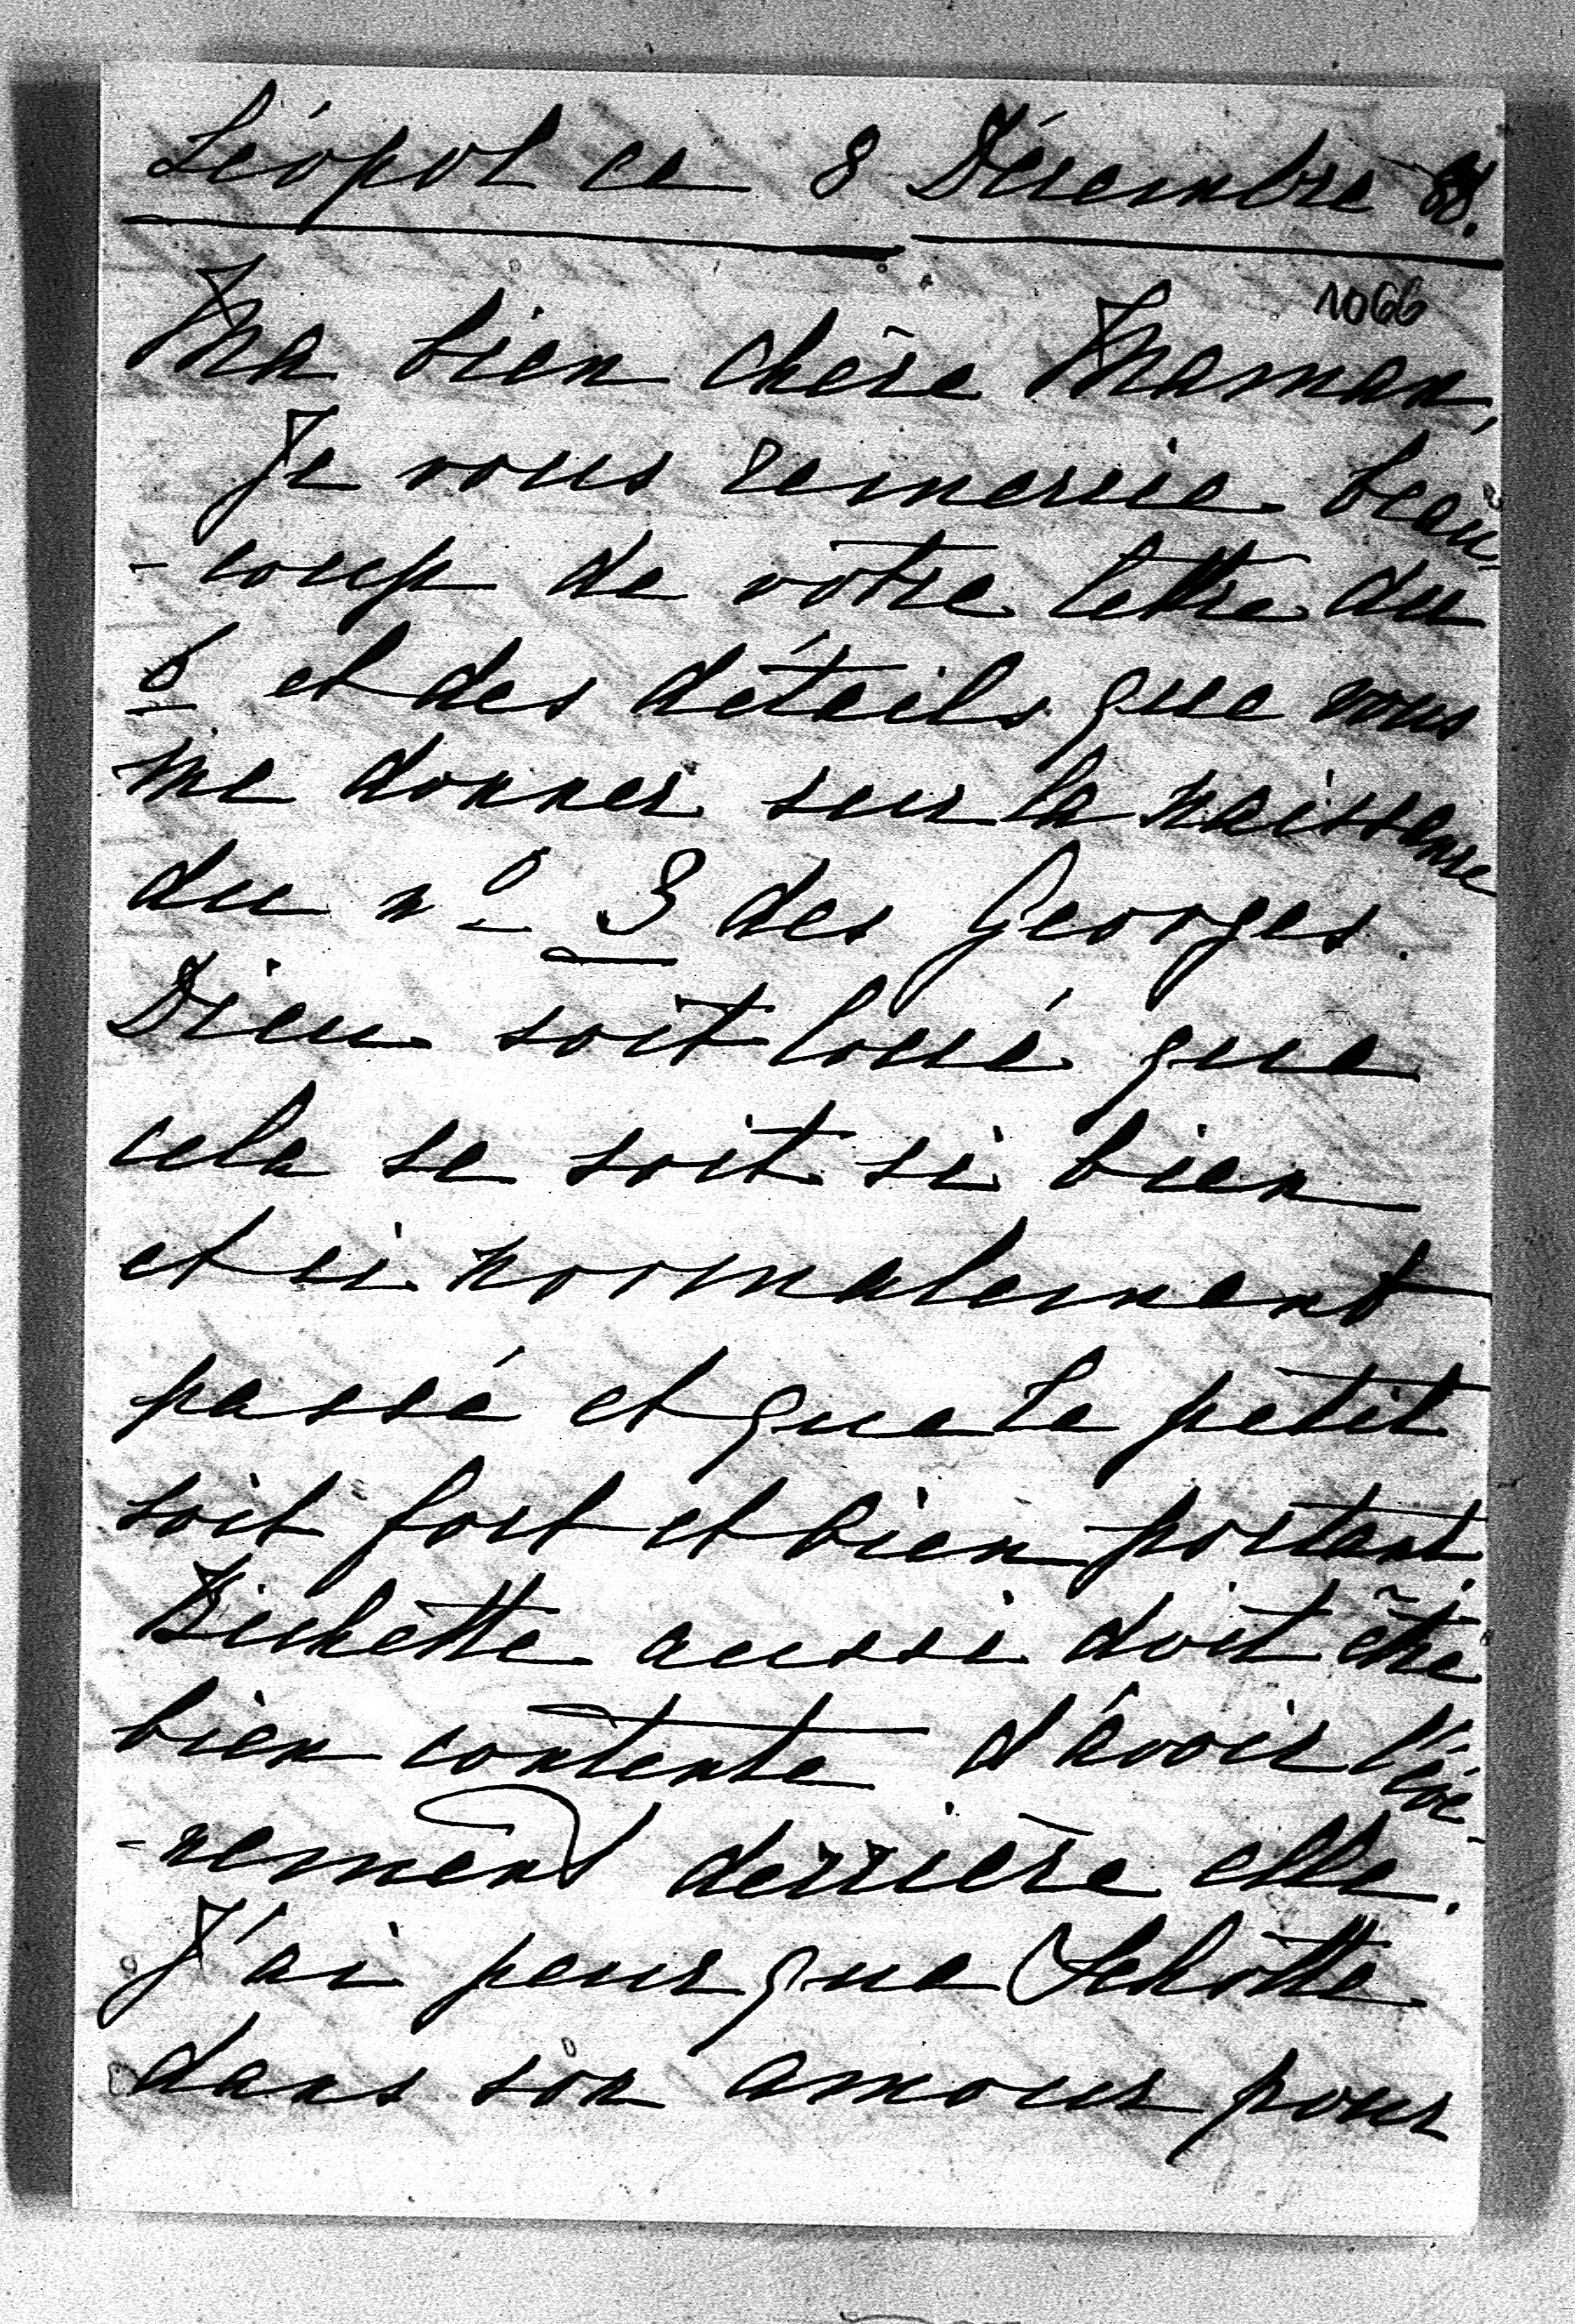 Léopol ce 8 Décembre 88.
1066
Ma bien chère Maman,
Je vous remercie beau-
-coup de votre lettre du
6 et des détails que vous
me donnez sur la naissance
du nº 3 des Georges.
Dieu soit loué que
cela se soit si bien
et si normalement
passé et que le petit
soit fort et bien portant.
Bichette aussi doit être
bien contente d'avoir l'évé-
-nement derrière elle.
J'ai peur que
dans son amour pour